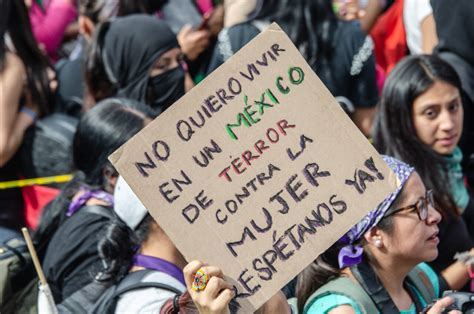 NO QUIERO VIVIR
EN UN MÉXICO
DE TERROR
CONTRA LA
MUJER
RESPÉTANOS YA!